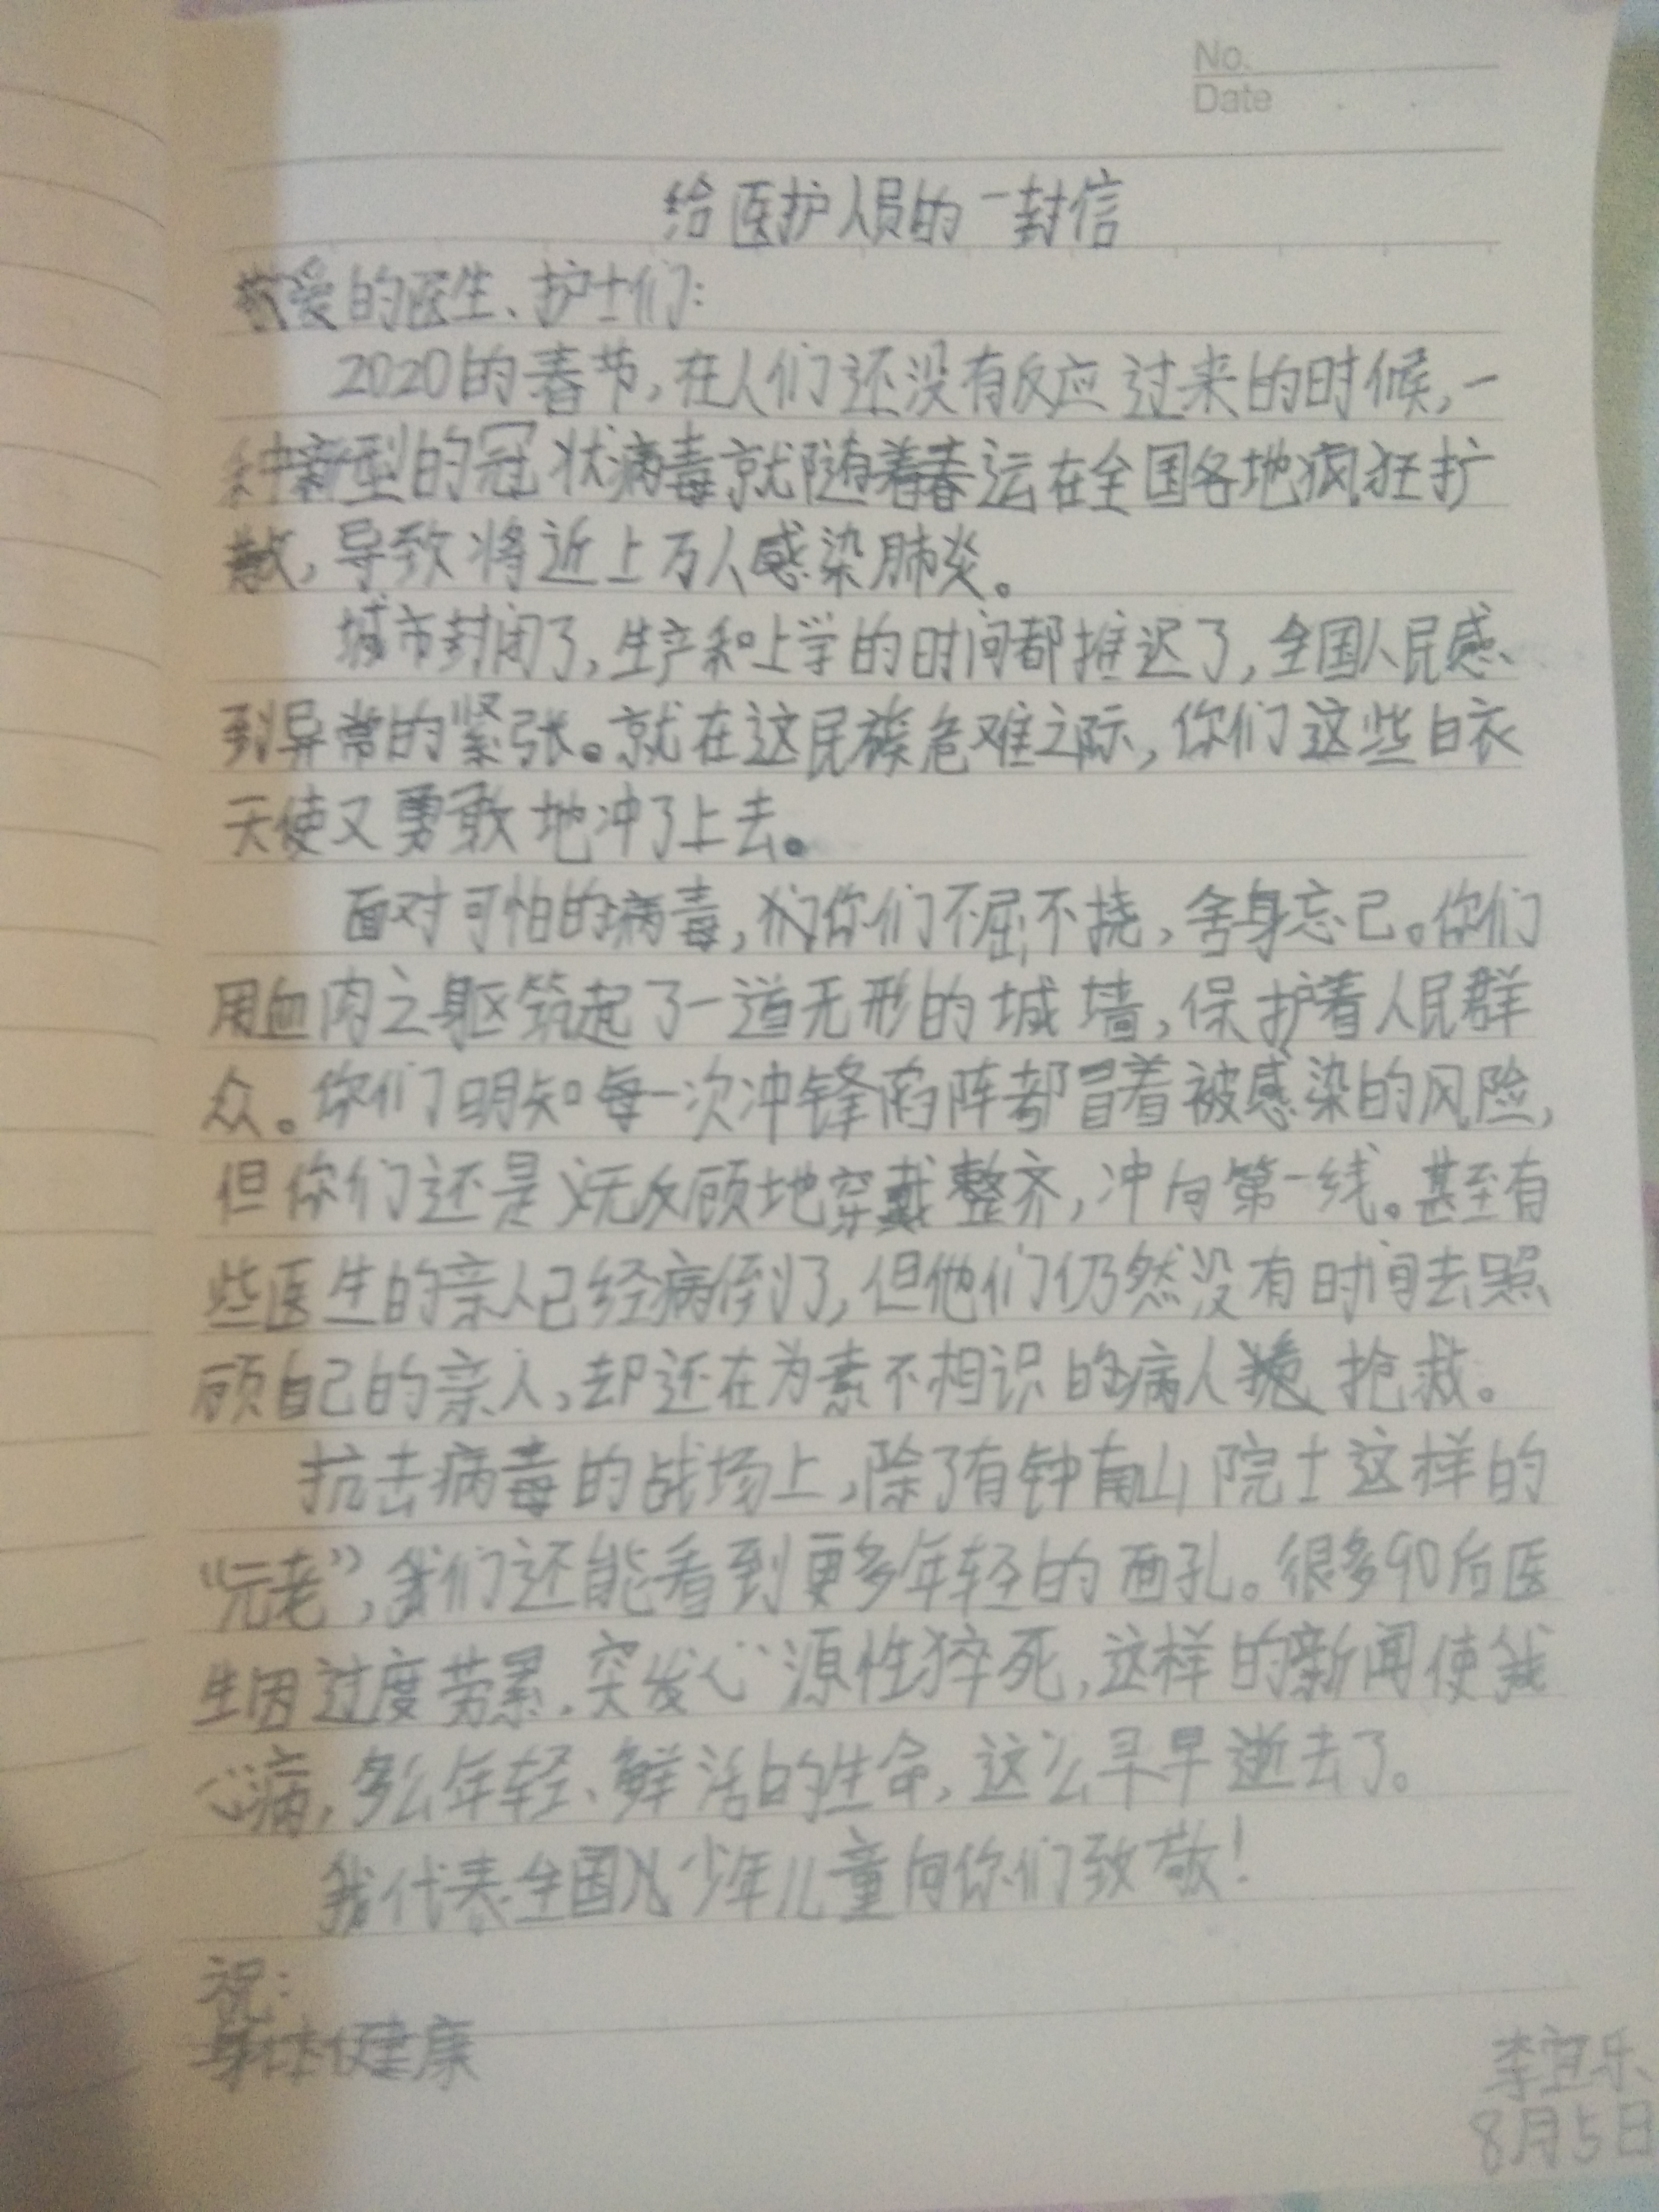 No.
Date
给医护人员的一封信
敬爱的医生、护士们:
2020的春节,在人们还没有反应过来的时候,一
种新型的冠状病毒就随着春运在全国各地疯狂扩
散,导致将近上万人感染肺炎。
城市封闭了,生产和上学的时间都推迟了,全国人民感
到异常的紧张。就在这民族危难之际,你们这些白衣
天使又勇敢地冲了上去。
面对可怕的病毒,你们不屈不挠,舍身忘己。你们
用血肉之躯筑起了一道无形的城墙,保护着人民群
众。你们明知每一次冲锋陷阵都冒着被感染的风险,
但你们还是义无反顾地穿戴整齐,冲向第一线。甚至有
些医生的亲人已经病倒了,但他们仍然没有时间去照
顾自己的亲人,却还在为素不相识的病人抢救。
抗击病毒的战场上,除了有钟南山院士这样的
“元老”,我们还能看到更多年轻的面孔。很多90后医
生因过度劳累,突发心源性猝死,这样的新闻使我
心痛,多么年轻、鲜活的生命,这么早早逝去了。
我代表全国少年儿童向你们致敬!
祝:
身体健康
李宜乐
8月5日